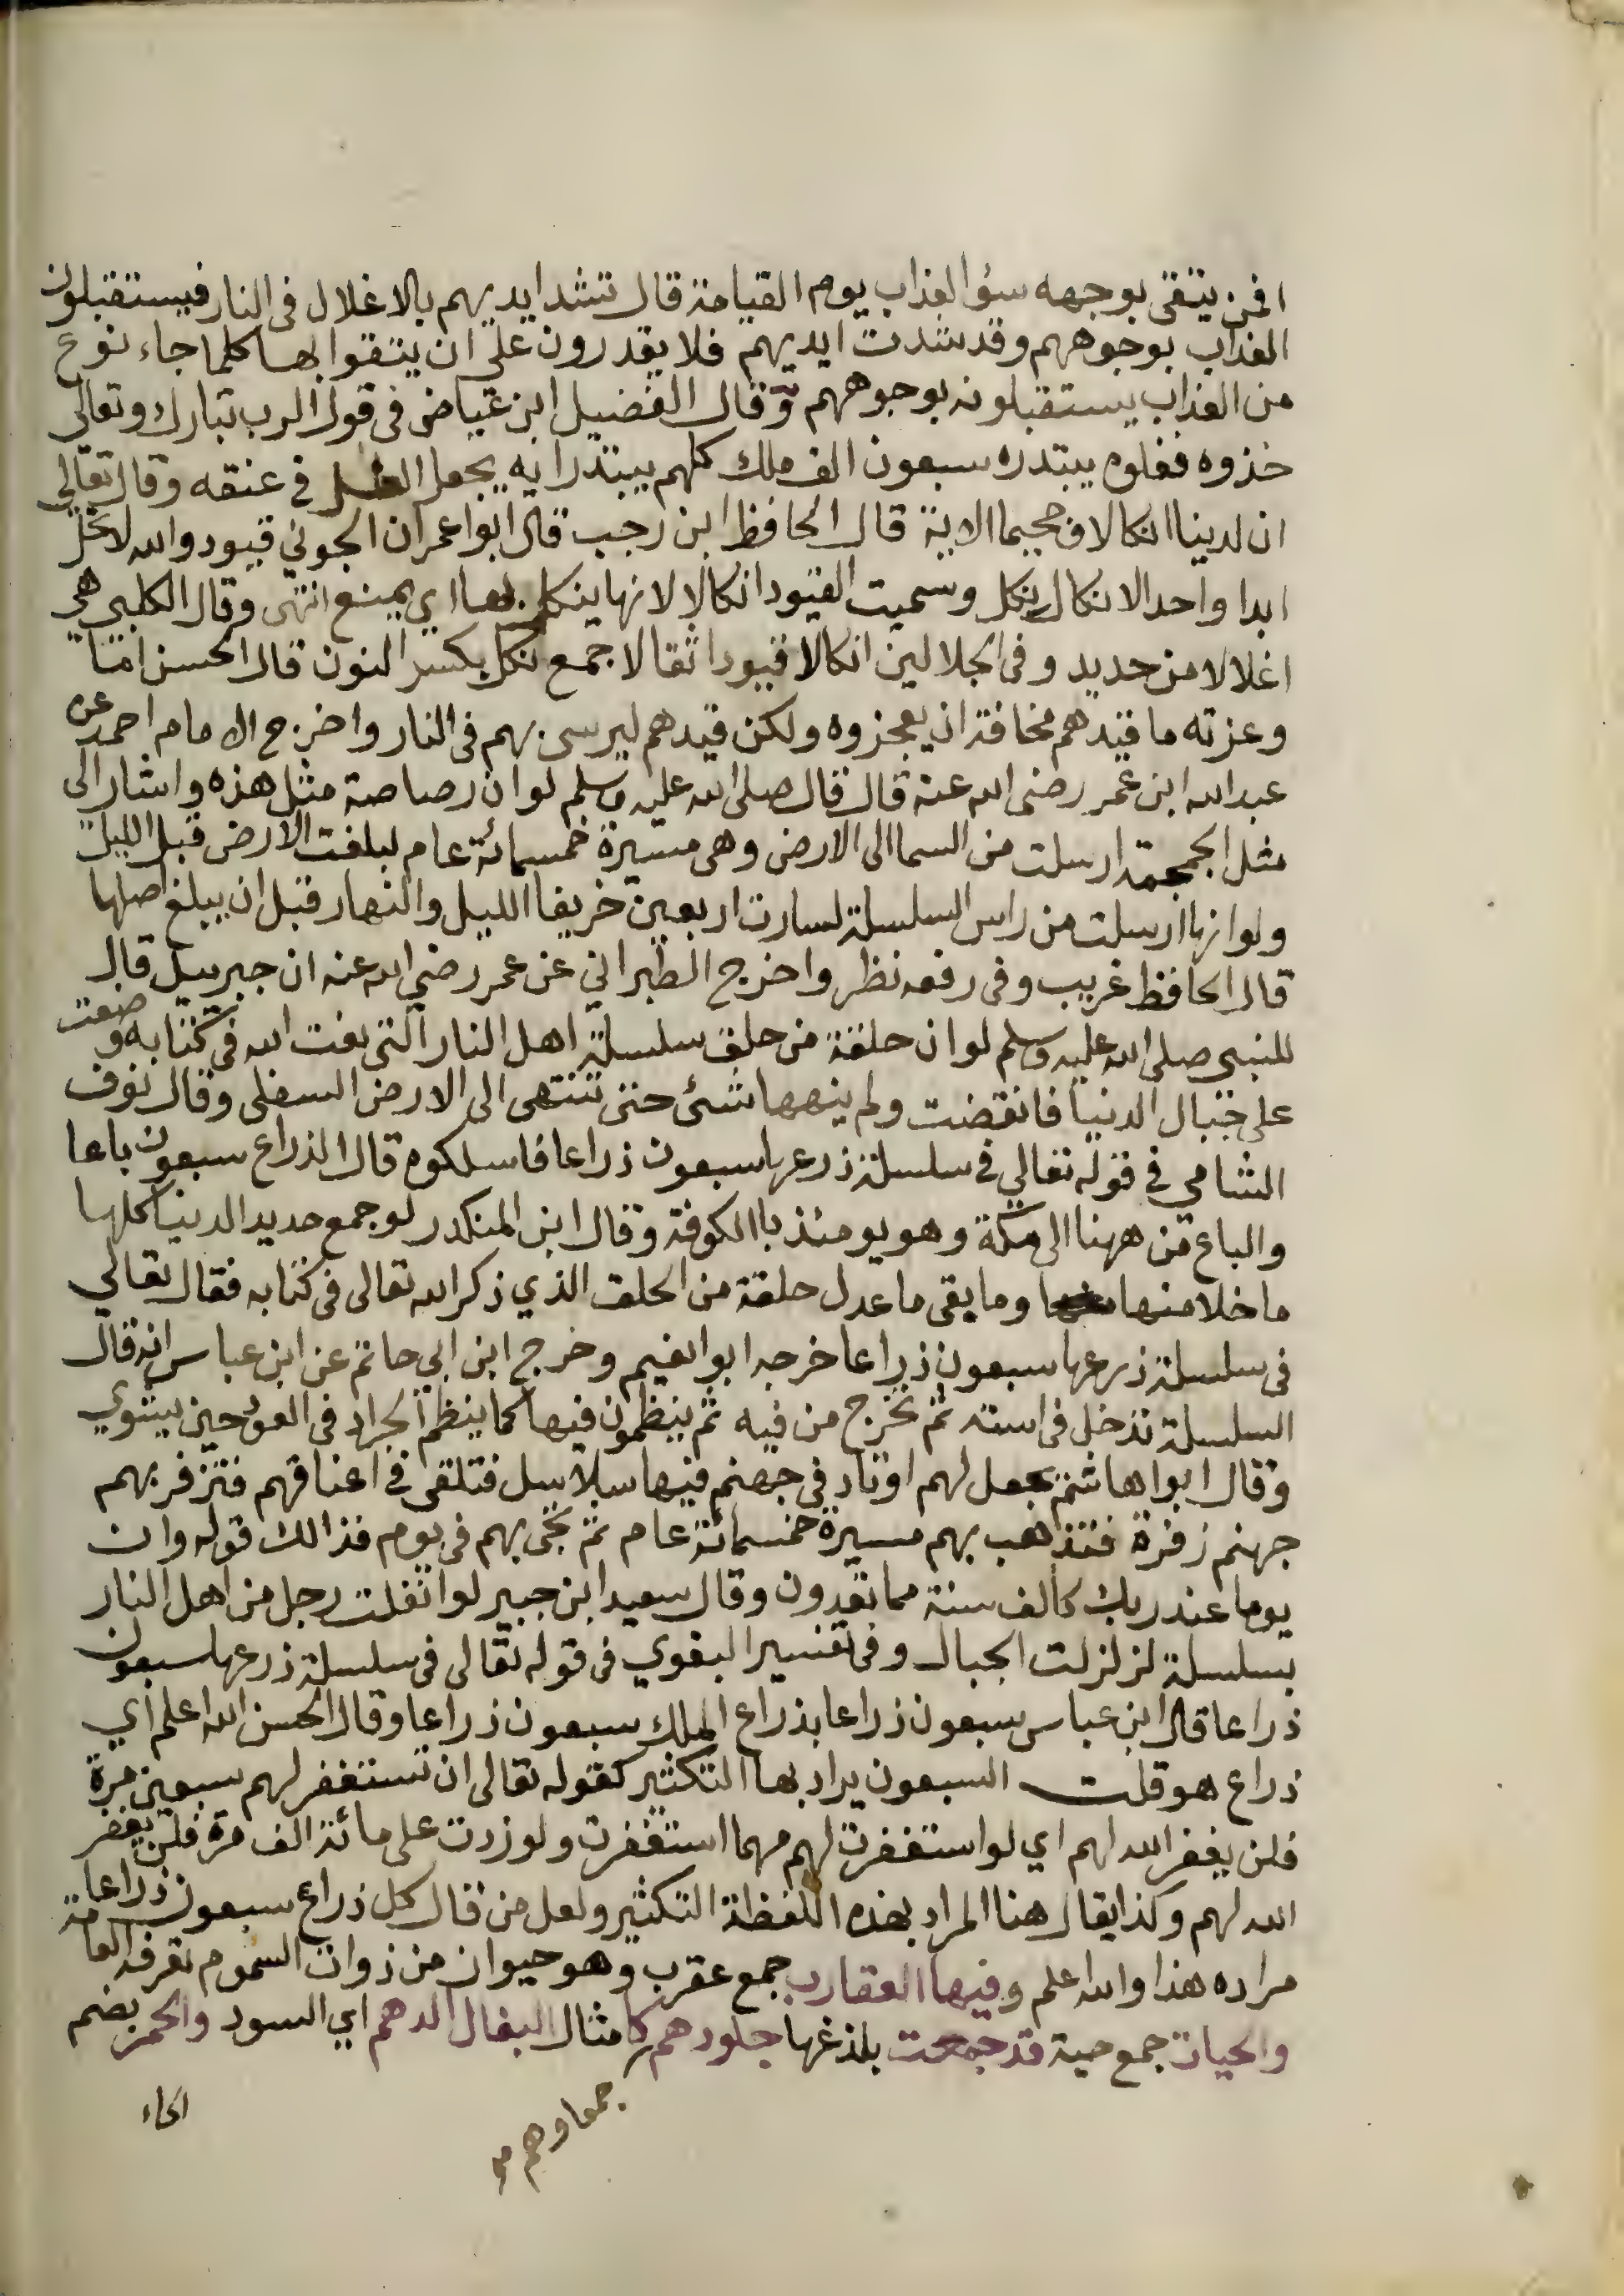 افمن يتقى بوجهه سؤ العذاب يوم القيامة قال تشد ايديهم بالاغلال فى النار فيستقبلون
العذاب بوجوههم وقد شدت ايديهم فلا يقدرون على ان يتقوا بها كلما جاء نوع
من العذاب يستقبلونه بوجوههم وقال الفضيل ابن عياض فى قول الرب تبارك وتعالى
خذوه فغلوه يبتدره سبعون الف ملك كلهم يبتدر ايه يجعل الغل فى عنقه وقال تعالى
ان لدينا انكالا وجحيما الاية قال الحافظ ابن رجب قال ابوا عمران الجونى قيود والله لا تحل
ابدا واحد الانكال نكل وسميت القيود انكالا لانها ينكل بها اي يمنع انتهى وقال الكلبى هى
اغلالا من حديد وفى الجلالين انكالا قيودا ثقالا جمع نكل بكسر النون قال الحسن اما
وعزته ما قيدهم مخافة ان يعجزوه ولكن قيدهم ليرسى بهم فى النار واخرج الامام احمد عن
عبد الله ابن عمر رضى الله عنه قال قال صلى الله عليه وسلم لو ان رصاصة مثل هذه واشار الى
مثل الجمجمة ارسلت من السما الى الارض وهى مسيرة خمسمائة عام لبلغت الارض قبل الليل
ولو انها ارسلت من راس السلسلة لسارت اربعين خريفا الليل والنهار قبل ان يبلغ اصلها
قال الحافظ غريب وفى رفعه نظر واخرج الطبراني عن عمر رضي الله عنه ان جبريل قال
للنبى صلى الله عليه وسلم لو ان حلقة من حلق سلسلة اهل النار التى نعت الله فى كتابه وضعت
على جبال الدنيا فانقضت ولم ينهها شئ حتى تنتهى الى الارض السفلى وقال نوف
الشامي فى قوله تعالى فى سلسلة ذرعها سبعون ذراعا فاسلكوه قال الذراع سبعون باعا
والباع من ههنا الى مكة وهو يومئذ باالكوفة وقال ابن المنكدر لو جمع حديد الدنيا كلها
ما خلا منها وما بقى ما عدل حلقة من الحلق الذي ذكر الله تعالى فى كتابه فقال تعالي
فى سلسلة ذرعها سبعون ذراعا خرجه ابوا نعيم وخرج ابن ابي حاتم عن ابن عباس انه قال
السلسلة تدخل فى استه ثم تخرج من فيه ثم ينظمون فيها كما ينظم الجراد فى العود حين يشوي
وقال ابوا هاشم يجعل لهم اوتاد فى جهنم فيها سلاسل فتلقى فى اعناقهم فتزفر بهم
جهنم زفرة فتذهب بهم مسيرة خمسمائة عام ثم تجى بهم فى يوم فذالك قوله وان
يوما عند ربك كالف سنة مما تعدون وقال سعيد ابن جبير لو انفلت رجل من اهل النار
بسلسلة لزلزلت الجبال وفى تفسير البغوي فى قوله تعالى فى سلسلة ذرعها سبعون
ذراعا قال ابن عباس سبعون ذراعا بذراع الملك سبعون ذراعا وقال الحسن الله اعلم اي
ذراع هو قلت السبعون يراد بها التكثير كقوله تعالى ان تستغفر لهم سبعين مرة
فلن يغفر الله لهم اي لو استغفرت لهم مهما استغفرت ولو زدت على مائة الف مرة فلن يغفر
الله لهم وكذا يقال هنا المراد بهذه اللفظة التكثير ولعل من قال كل ذراع سبعون ذراعا
مراده هذا والله اعلم وفيها العقارب جمع عقرب وهو حيوان من ذوات السموم تعرفه العامة
والحيات جمع حية قد جمعت بلذغها جلودهم كامثال البغال الدهم اي السود والحمر بضم
الحاء